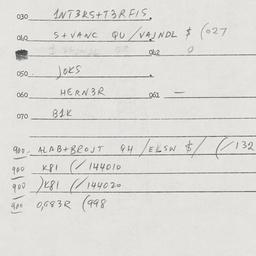 030 1NT3RS+T3RFIS.
040 S+VANC QU /VAJNDL $ (027
042 0
050. JOKS
060 HERN3R 061 —
070 81K
900. ALAB+BROJT QH /ELSW $/ (/132
900 K81 (/144010
900 )K81 (/144020
900 0,683R (998